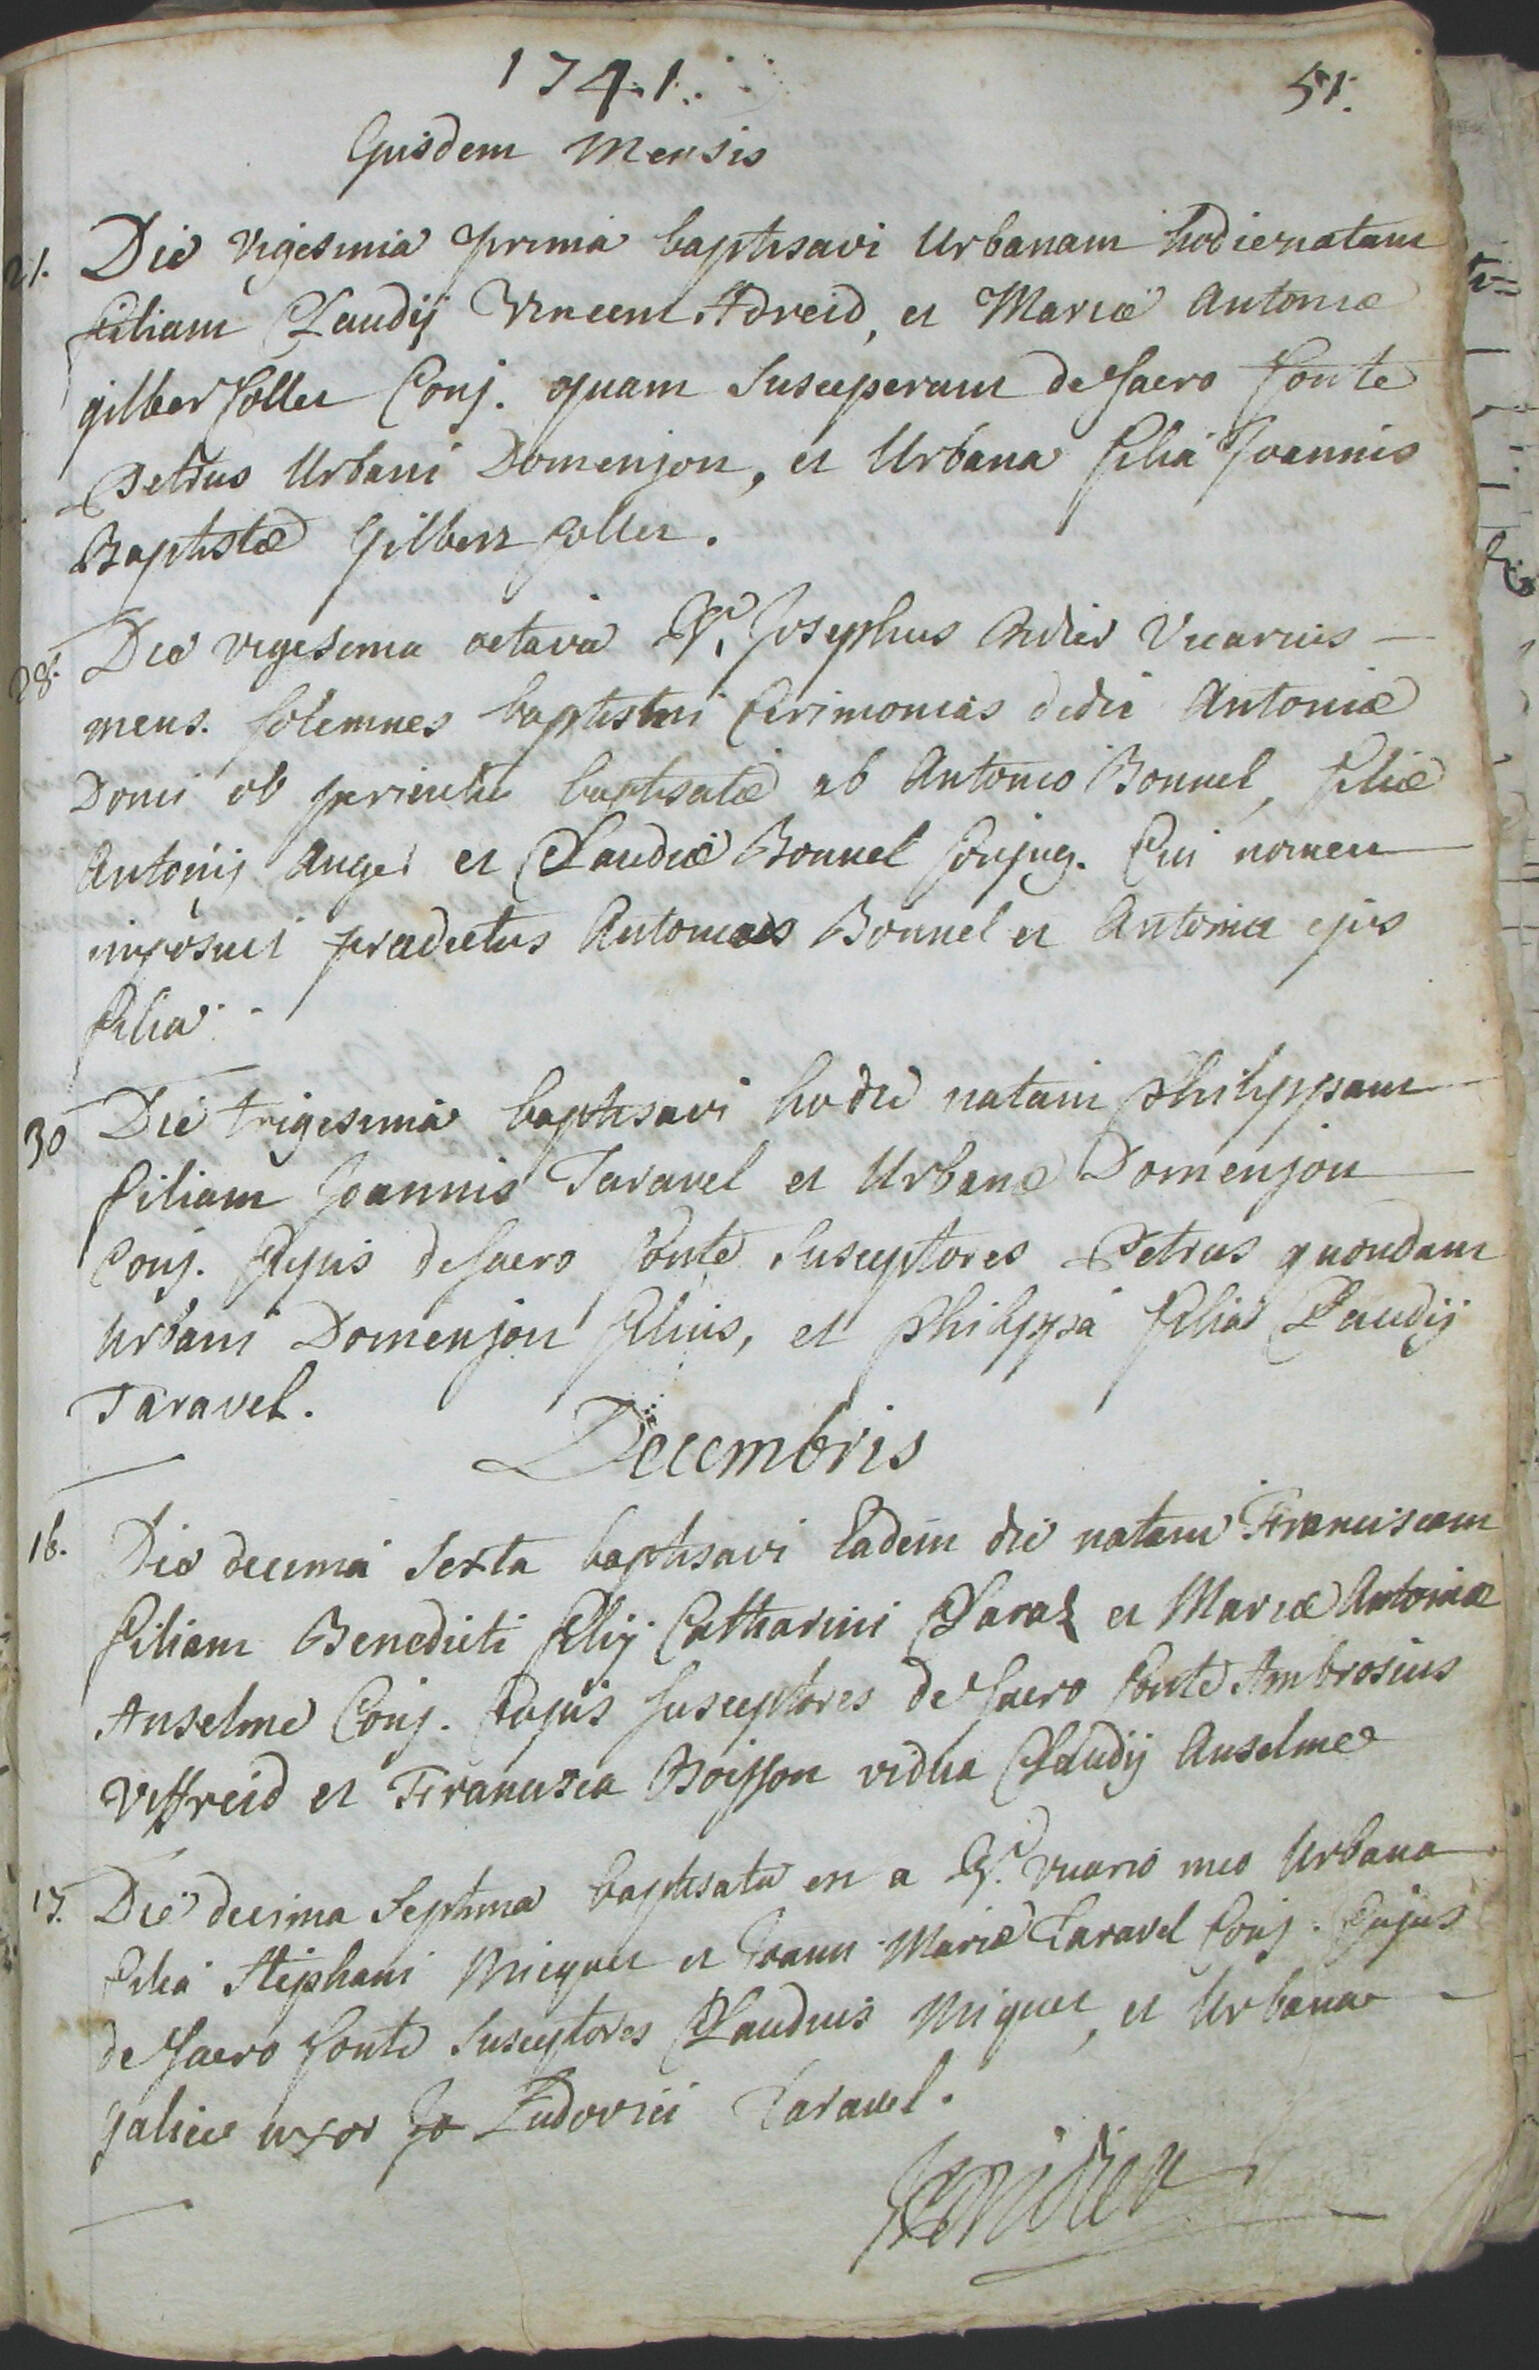 1741.
51.
Ejusdem Mensis
21. Die vigesima prima baptisavi Urbanam hodie natam
filiam Claudij Vincent Adreid, et Mariæ Antoniæ
gilber Collet Conj. quam susceperunt de sacro fonte
Petrus Urbani Domenjon, et Urbana filia Joannis
Baptistæ Gilbert Collet.
28. Die vigesima octava Rd. Josephus Didier Vicarius
meus. solemnes baptismi Cerimonias dedit Antoniæ
Domi ob periculu baptisatæ ab Antonio Bonnel, filiæ
Antonij Anger et Claudiæ Bonnel Conjug. Cui nomen
imposuit prædictus Antonius Bonnel et Antonia ejus
filia.
30 Die trigesima baptisavi hodie natam philippam
filiam Joannis Taravel et Urbanæ Domenjon
Conj. Cujus de sacro fonte susceptores Petrus quondam
Urbani Domenjon filius, et philippa filia Claudij
Taravel.
Decembris
16. Die decima sexta baptisavi Eadem die natam Franciscam
filiam Benedicti filij Catharini Claraz et Mariæ Antoniæ
Anselme Conj. Cujus susceptores de sacro fonte Ambrosius
Viffreid et Francisca Boisson vidua Claudij Anselme
17. Die decima septima baptisata est a Rd. vicario meo Urbana
filia Stephani Micquet et Joann Mariæ Taravel Conj. Cujus
de sacro fonte susceptores Claudius Miquet, et Urbana
galice uxor Jo Ludovici Taravel.